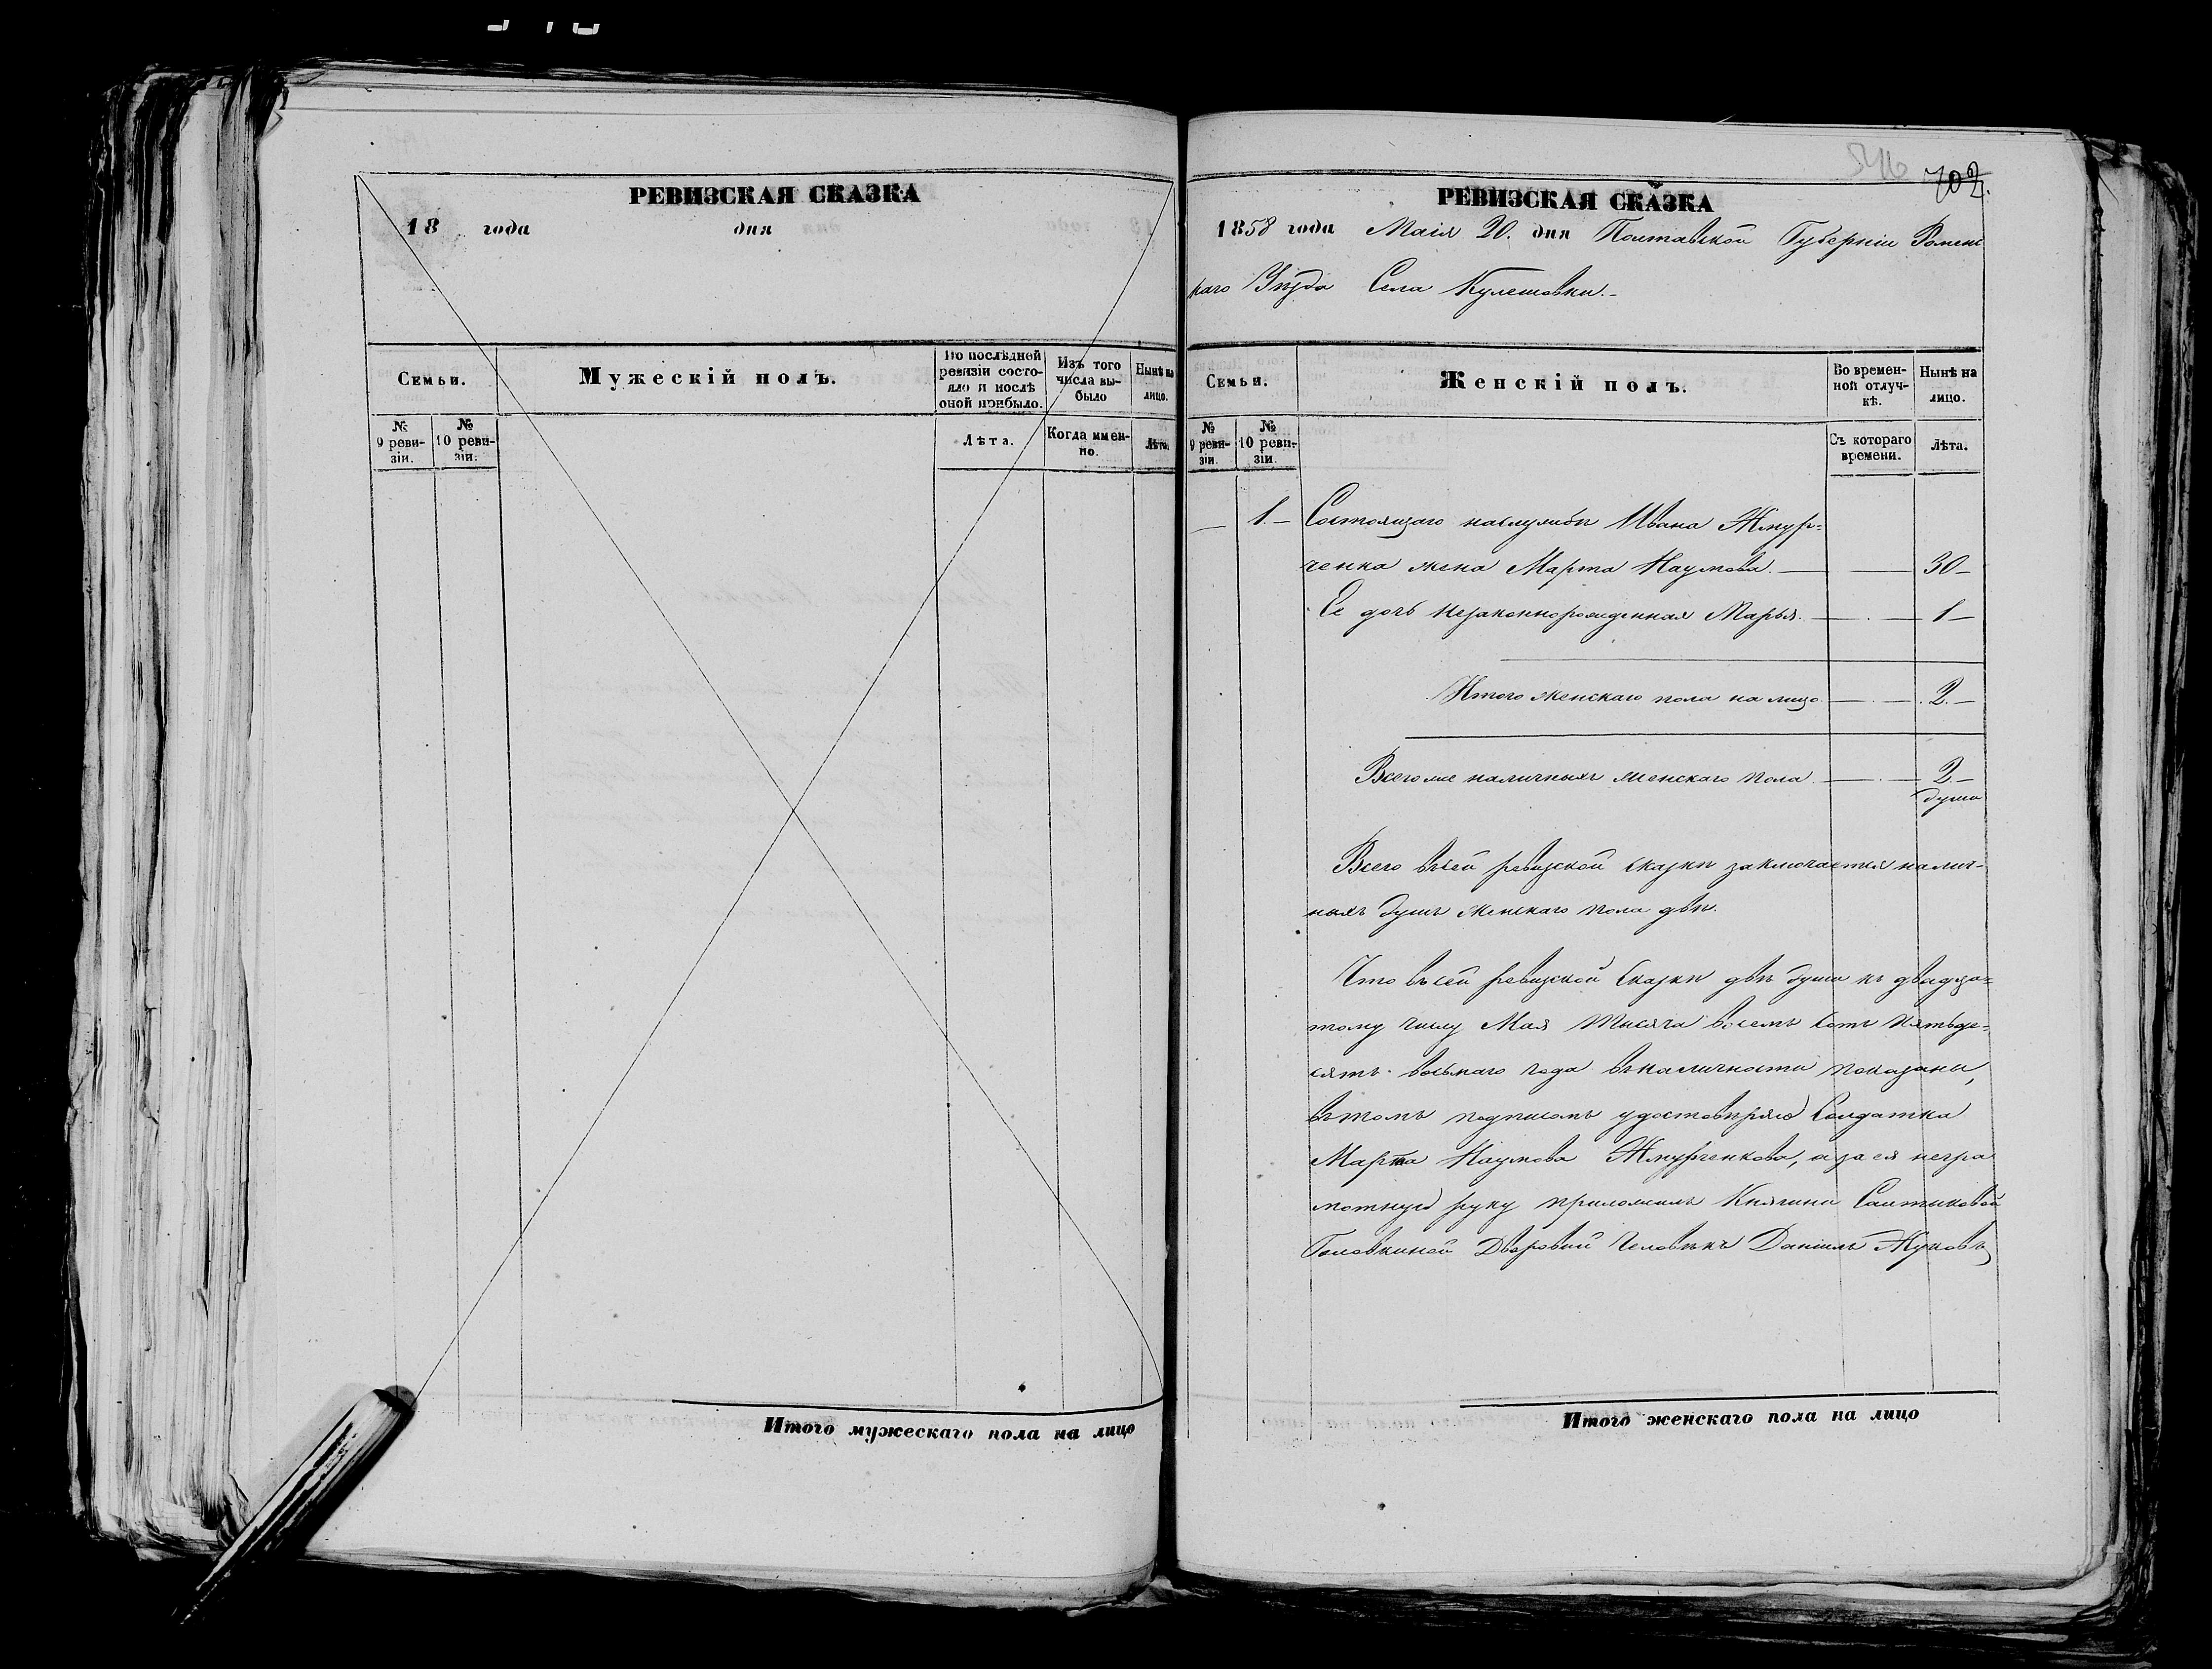 РЕВИЗСКАЯ СКАЗКА
18 года дня
Семьи.
Мужескій полъ.
По послѣдней ревизіи состояло и послѣ оной прибыло.
Изъ того числа выбыло
Нынѣ на лицо.
№ 9 ревизіи.
№ 10 ревизіи.
Лѣта.
Когда именно.
Лѣта.
Итого мужескаго пола на лицо
546
702.
РЕВИЗСКАЯ СКАЗКА
1858 года Маія 20. дня Полтавской Губерніи Ромен
скаго Уѣзда Села Кулешовки.-
Семьи.
Женскій полъ.
Во временной отлучкѣ.
Нынѣ на лицо.
№ 9 ревизіи.
№ 10 ревизіи.
Съ котораго времени.
Лѣта.
— 1.— Состоящаго наслужбѣ Ивана Жмур=
ченка жена Марта Наумова. — — 30—
Ее дочь незаконнорожденная Марья. — — 1—
Итого женскаго пола на лицо — — 2.—
Всегоже наличныхъ женскаго пола — — 2—
души
Всего въсей ревизской сказкѣ заключается налич-
ныхъ душъ женскаго пола двѣ.
Что въсей ревизской Сказкѣ двѣ души къ двадца=
тому числу Мая тысяча восемъ сотъ пятьде=
сятъ восьмаго года въналичности показаны,
вътомъ подписомъ удостовѣряю Солдатка
Марта Наумова Жмурченкова, а за ея негра
мотную руку приложилъ Княгини Салтыковой
Головкиной Дворовый Человѣкъ Даніилъ Жуковъ
Итого женскаго пола на лицо